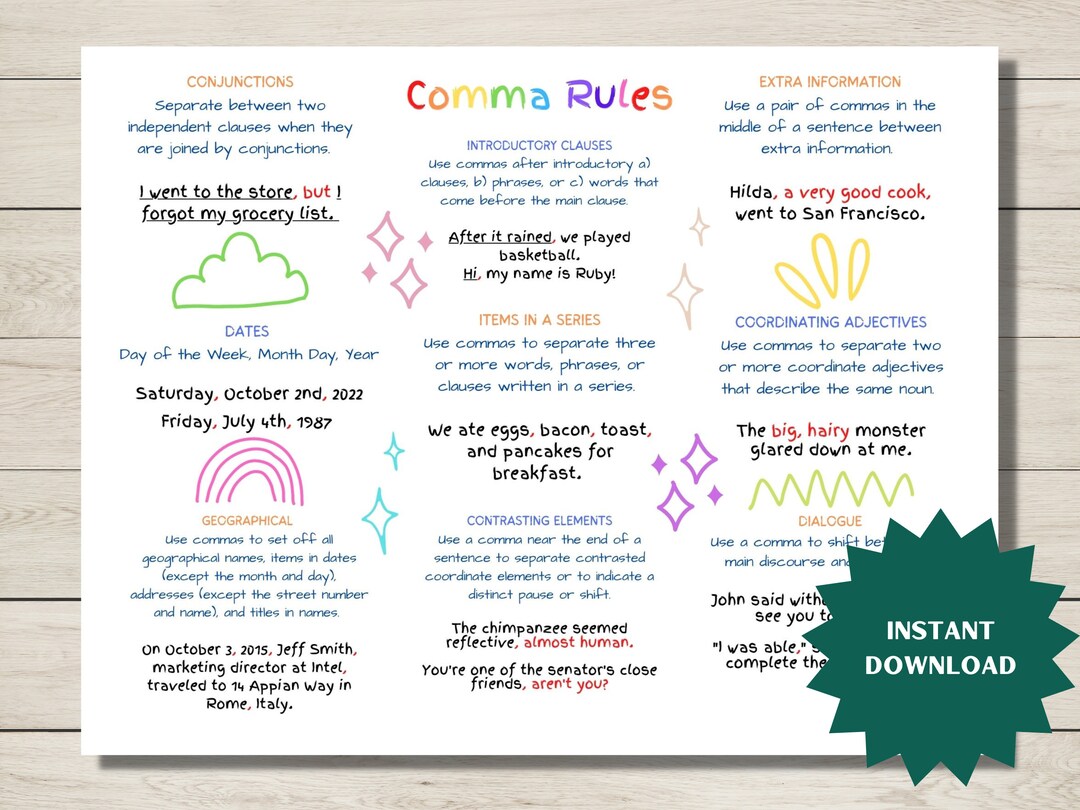 CONJUNCTIONS
Separate between two
independent clauses when they
are joined by conjunctions.
I went to the store, but I
forgot my grocery list.
DATES
Day of the Week, Month Day, Year
Saturday, October 2nd, 2022
Friday, July 4th, 1987
GEOGRAPHICAL
Use commas to set off all
geographical names, items in dates
(except the month and day),
addresses (except the street number
and name), and titles in names.
On October 3, 2015, Jeff Smith,
marketing director at Intel,
traveled to 14 Appian Way in
Rome, Italy.
Comma Rules
INTRODUCTORY CLAUSES
Use commas after introductory a)
clauses, b) phrases, or c) words that
come before the main clause.
After it rained, we played
basketball.
Hi, my name is Ruby!
ITEMS IN A SERIES
Use commas to separate three
or more words, phrases, or
clauses written in a series.
We ate eggs, bacon, toast,
and pancakes for
breakfast.
CONTRASTING ELEMENTS
Use a comma near the end of a
sentence to separate contrasted
coordinate elements or to indicate a
distinct pause or shift.
The chimpanzee seemed
reflective, almost human.
You're one of the senator's close
friends, aren't you?
EXTRA INFORMATION
Use a pair of commas in the
middle of a sentence between
extra information.
Hilda, a very good cook,
went to San Francisco.
COORDINATING ADJECTIVES
Use commas to separate two
or more coordinate adjectives
that describe the same noun.
The big, hairy monster
glared down at me.
DIALOGUE
Use a comma to shift
main discourse
John said
see you
"I was able,"
complete
INSTANT
DOWNLOAD